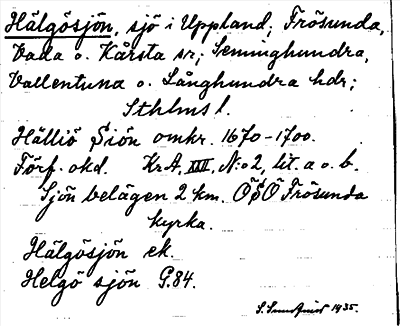 Hälgösjön, sjö i Uppland; Frösunda,
Vada o. Kårsta sr; Seminghundra,
Vallentuna o. Långhundra hdr;
Sthlms l.
Hälliö Siön omkr. 1670-1700.
Förf. okd. Kr.A, XIII, N:o 2, lit. a o. b.
Sjön belägen 2 km. ÖSÖ Frösunda
kyrka.
Hälgösjön ek.
Helgö sjön G.84.
S. 1935.